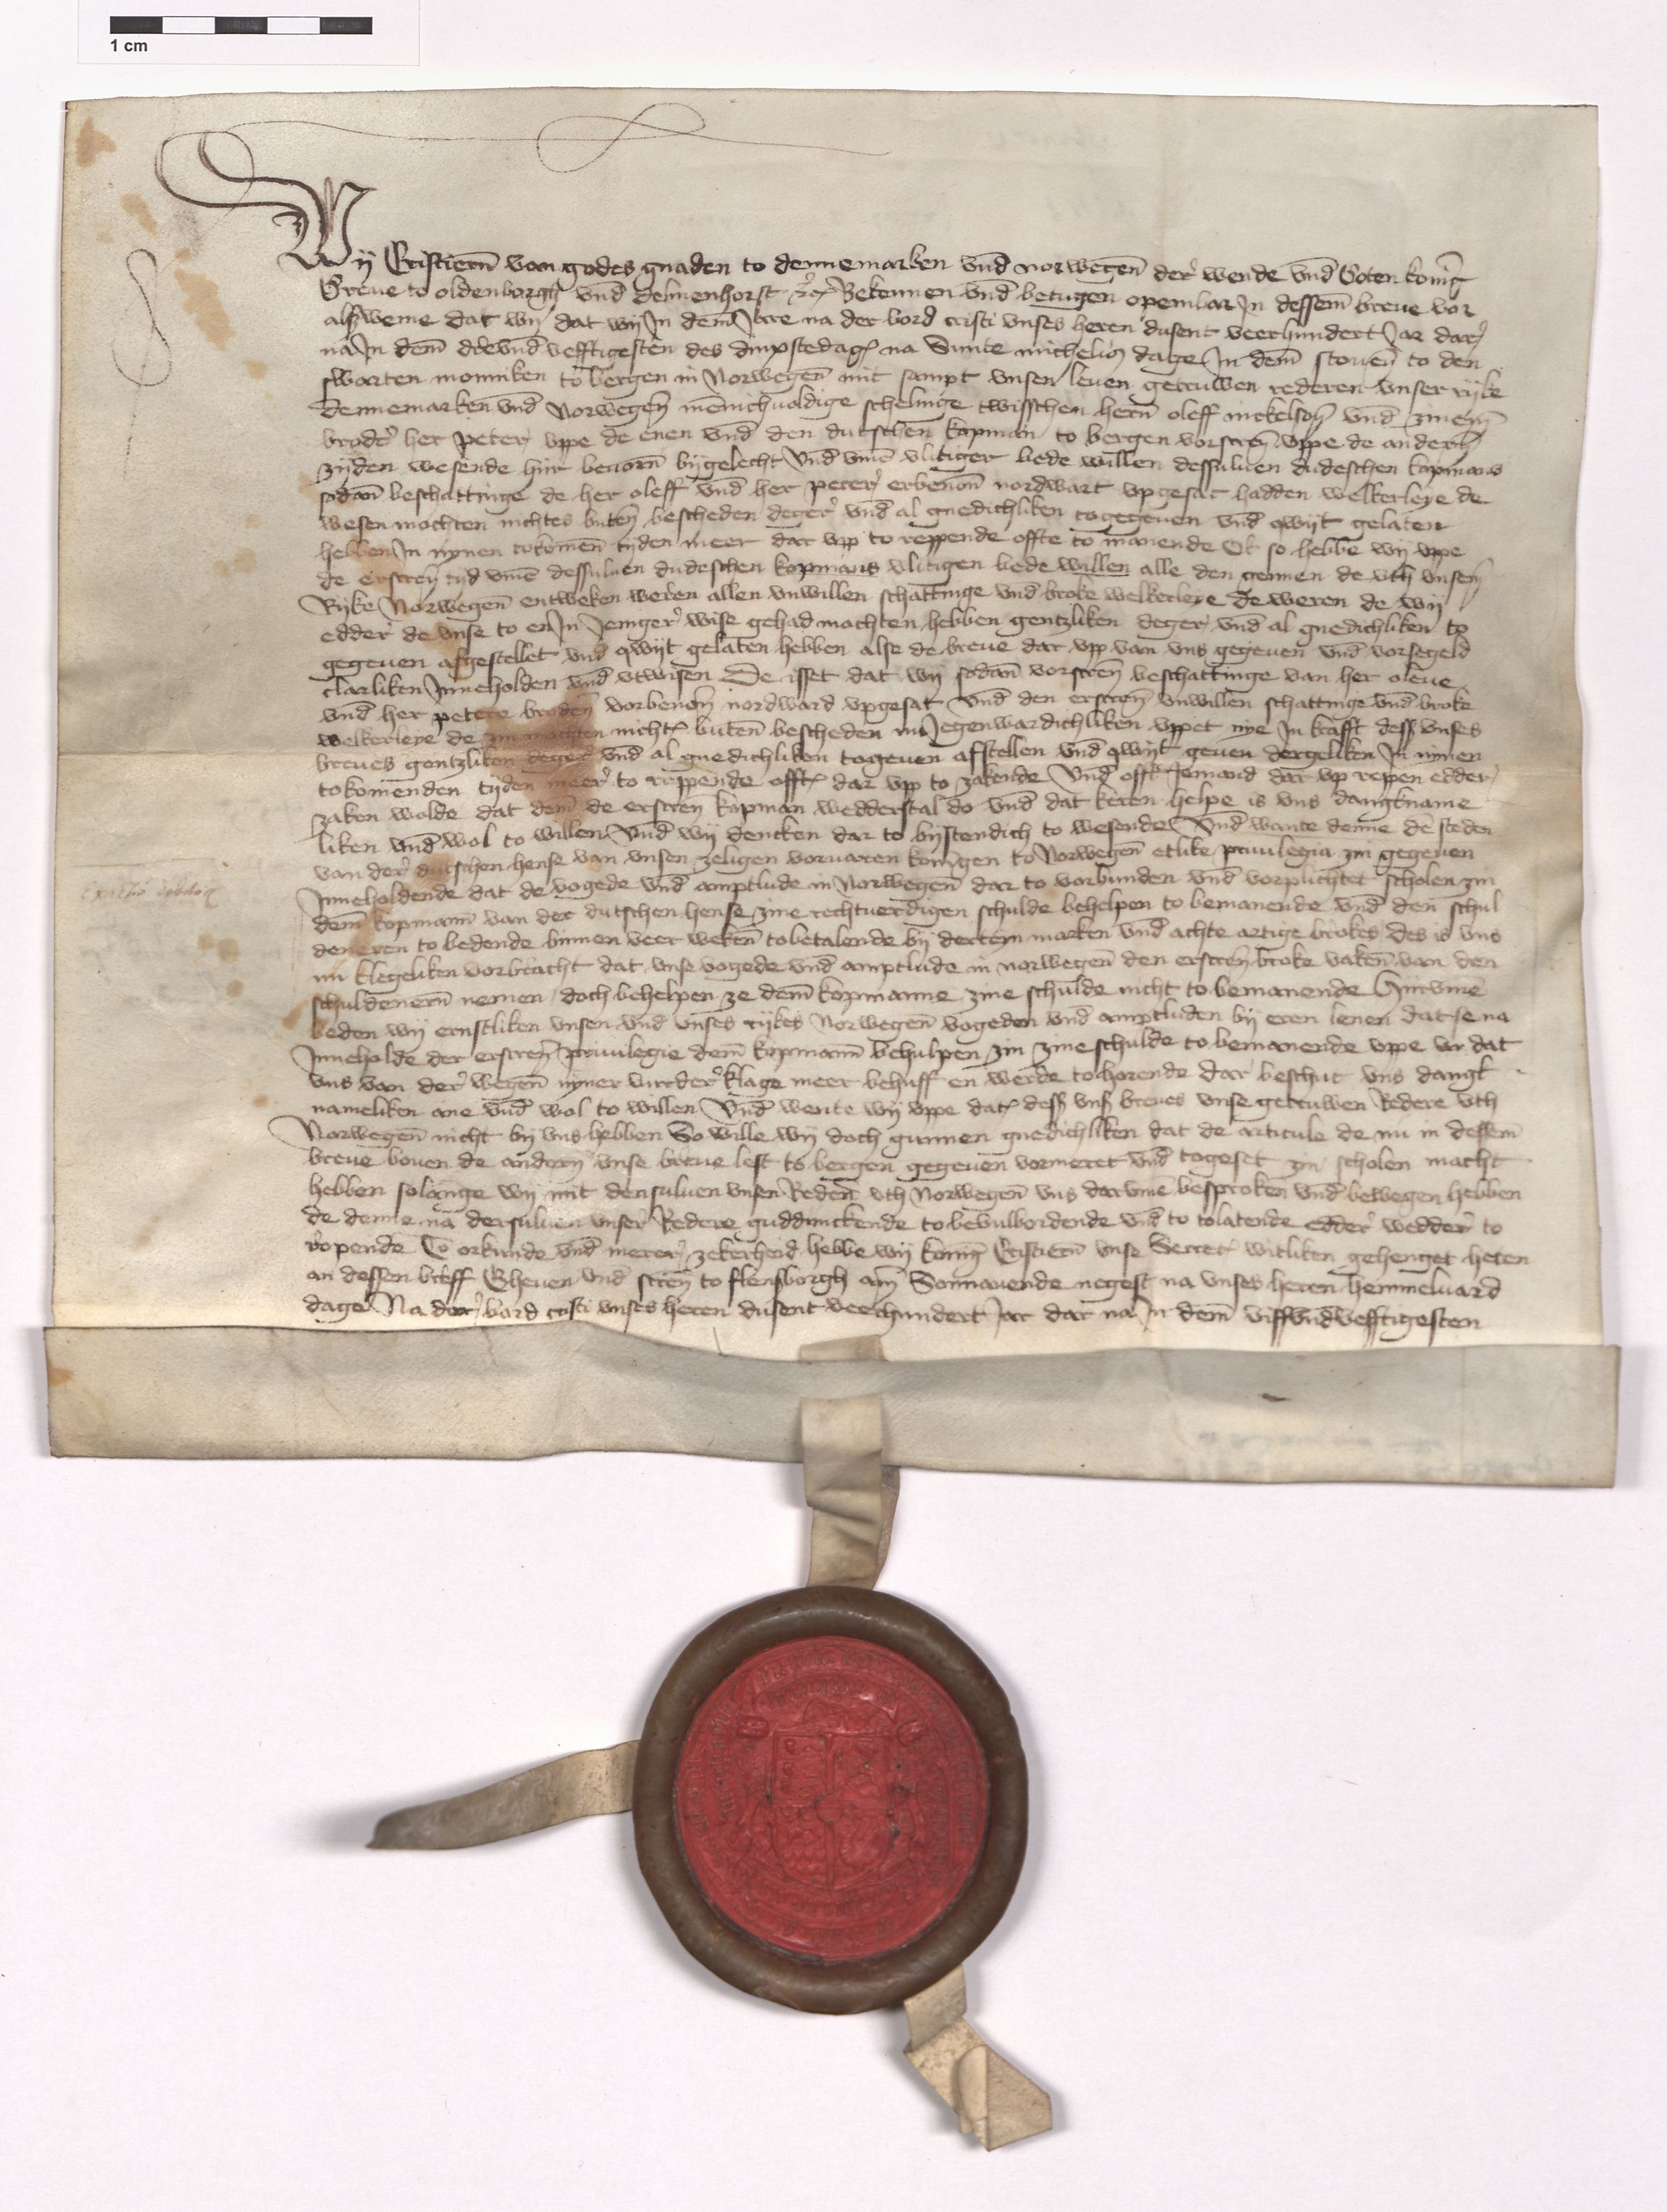 1 cm
Wij Cristiern̄ van godes gnaden to dennemarken vnd̄ norwegen̄ der wende vnd̄ Goten konīg
Greue to oldenborgh vnd̄ delmenhorst Bekennen vnd̄ betugen openbar In dessem̄ breue vor
alszweme dat wij dat wij In dem̄ Jare na der bord cristi vnses heren dusent veerhundert Jar dar
na In dem̄ dre vnd̄ vefftigesten des dinxstedages na Sunte michelis dage In dem̄ stouen̄ to den
swarten monniken to bergen in Norwegen̄ mit sampt vnsen leuen getruwen rederen vnser rijke
dennemarken vnd̄ Norwegen̄ mēnichuoldige schelinge twisschen hern̄ oleff nickelson̄ vnd̄ zinem̄
broder her peter vppe de enen vnd̄ den dutschen kopman to bergen vorscreū vppe de anderen̄
zijden wesende hijr beuorn̄ bijgelecht Vnd̄ vm̄e vlitiger bede willen dessuluen dudeschen kopmans
sodan̄ beschattinge de her oleff vnd̄ her peter erbenom̄ nordwart vpgesat hadden welkerleye de
wesen mochten nichtes buten̄ bescheden deger vnd̄ al gnedichliken togegeuen vnd̄ qwijt gelaten
hebben In nynen tokomen̄ tijden meer dar vpp to reppende offte to manende Ok so hebbe wij vppe
de erscreū tijd vm̄e dessuluen dudeschen kopmans vlitigen bede willen alle den gennen de vth vnsem̄
Rijke Norwegen̄ entweken weren allen vnwillen schattinge vnd̄ broke welkerleye de weren de wij
edder de vnse to en In Jeniger wise gehad mochten hebben gentzliken deger vnd̄ al gnedichliken to
gegeuen afgestellet vnd̄ qwijt gelaten hebben alse de breue dar vpp van vns gegeuen vnd̄ vorsegeld
clarliken Inneholden vnd̄ vtwisen De isset dat wij sodan̄ vorscreū beschattinge van her oleue
vnd̄ her petere broderen vorbenom̄ nordward vpgesat Vnd̄ den erscreū vnwillen schattinge vnd̄ broke
welkerleye de zin mochten nichtes buten̄ bescheden in Jegenwardichliken vppet nye In krafft dess vnses
breues gentzliken deger vnd̄ al gnedichliken togeuen afstellen vnd̄ qwijt geuen dergeliken In nynen
tokomenden tijden meer to reppende offte dar vpp to zakende Vnd̄ offt Jemand dar vp reppen edder
zaken wolde dat dem̄ de erscreū kopman wedderstal do vnd̄ dat keren helpe is vns dangkname
liken vnd̄ wol to willen Vnd̄ wij dencken dar to bijstendich to wesende Vnd̄ wante denne de steden
van der dutschen hense van vnsen zeligen voruaren konīgen to Norwegen̄ etlike priuilegia zin gegeuen
Inneholdende dat de vogede vnd̄ amptlude in Norwegen̄ dar to vorbunden vnd̄ vorplichtet scholen zin
dem̄ kopmann̄ van der dutschen hense zine rechtuerdigen schulde behelpen to bemanende vnd̄ den schul
deneren to bedende binnen veer weken̄ to betalende bij derteyn marken vnd̄ achte artige brokes des is vns
nu klegeliken vorbracht dat vnse vogede vnd̄ amptlude in norwegen̄ den erscreū broke vaken̄ van den
schuldenern̄ nemen doch behelpen ze dem̄ kopmanne zine schulde nicht to bemanende Hirvm̄e
beden wij ernstliken vnsen vnd̄ vnses rijkes Norwegen̄ vogeden vnd̄ amptluden bij eren lenen dat se na
Inneholde der erscreū priuilegie dem̄ kopmann̄ behulpen zin zine schulde to bemanende vppe vr dat
vns van der wegen̄ nyner vurder klage meer behuff en werde to horende dar beschut vns dangk
nameliken ane vnd̄ wol to willen Vnd̄ wente wij vppe dat dess vnses breues vnse getruwen Redere vth
Norwegen̄ nicht bij vns hebben So wille wij doch gunnen gnedichliken dat de articule de nu in dessem̄
breue bouen de anderen vnse breue lest to bergen gegeuen vormeret vnd̄ togeset zin scholen macht
hebben solange wij mit densuluen vnsen Reden̄ vth Norwegen̄ vns darvm̄e besproken vnd̄ bewegen hebben
de denne na dersuluen vnser Redere guddunckende to beuulbordende vnd̄ to tolatende edder wedder to
ropende To orkunde vnd̄ merer zekerheid hebbe wij konīg Cristiern̄ vnse Secret witliken gehenget heten
an dessen breff Gheuen vnd̄ screū to flensborgh am̄ Sonnauende negest na vnses heren hemmeluard
dage Na der bord cristi vnses heren dusent veerhundert Jar dar na In dem̄ viffvndvefftigesten